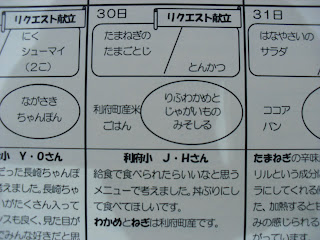 リクエスト献立
にく
シューマイ
(2こ)
ながさき
ちゃんぽん
小 Y・Oさん
だった長崎ちゃんぽ
えました。長崎ちゃ
いがたくさん入って
ンスも良く、見た目が
でみんな好きだと思
30日
リクエスト献立
たまねぎの
たまごとじ
とんかつ
利府町産米
ごはん
りふわかめと
じゃがいもの
みそしる
利府小 J・Hさん
給食で食べられたらいいなと思う
メニューで考えました。丼ぶりにし
て食べてほしいです。
わかめとねぎは利府町産です。
31日
はなやさいの
サラダ
ココア
パン
たまねぎの辛味成
リルという成分に
ラにしてくれる
だ、加熱すると甘
みの感じられる
がっています。